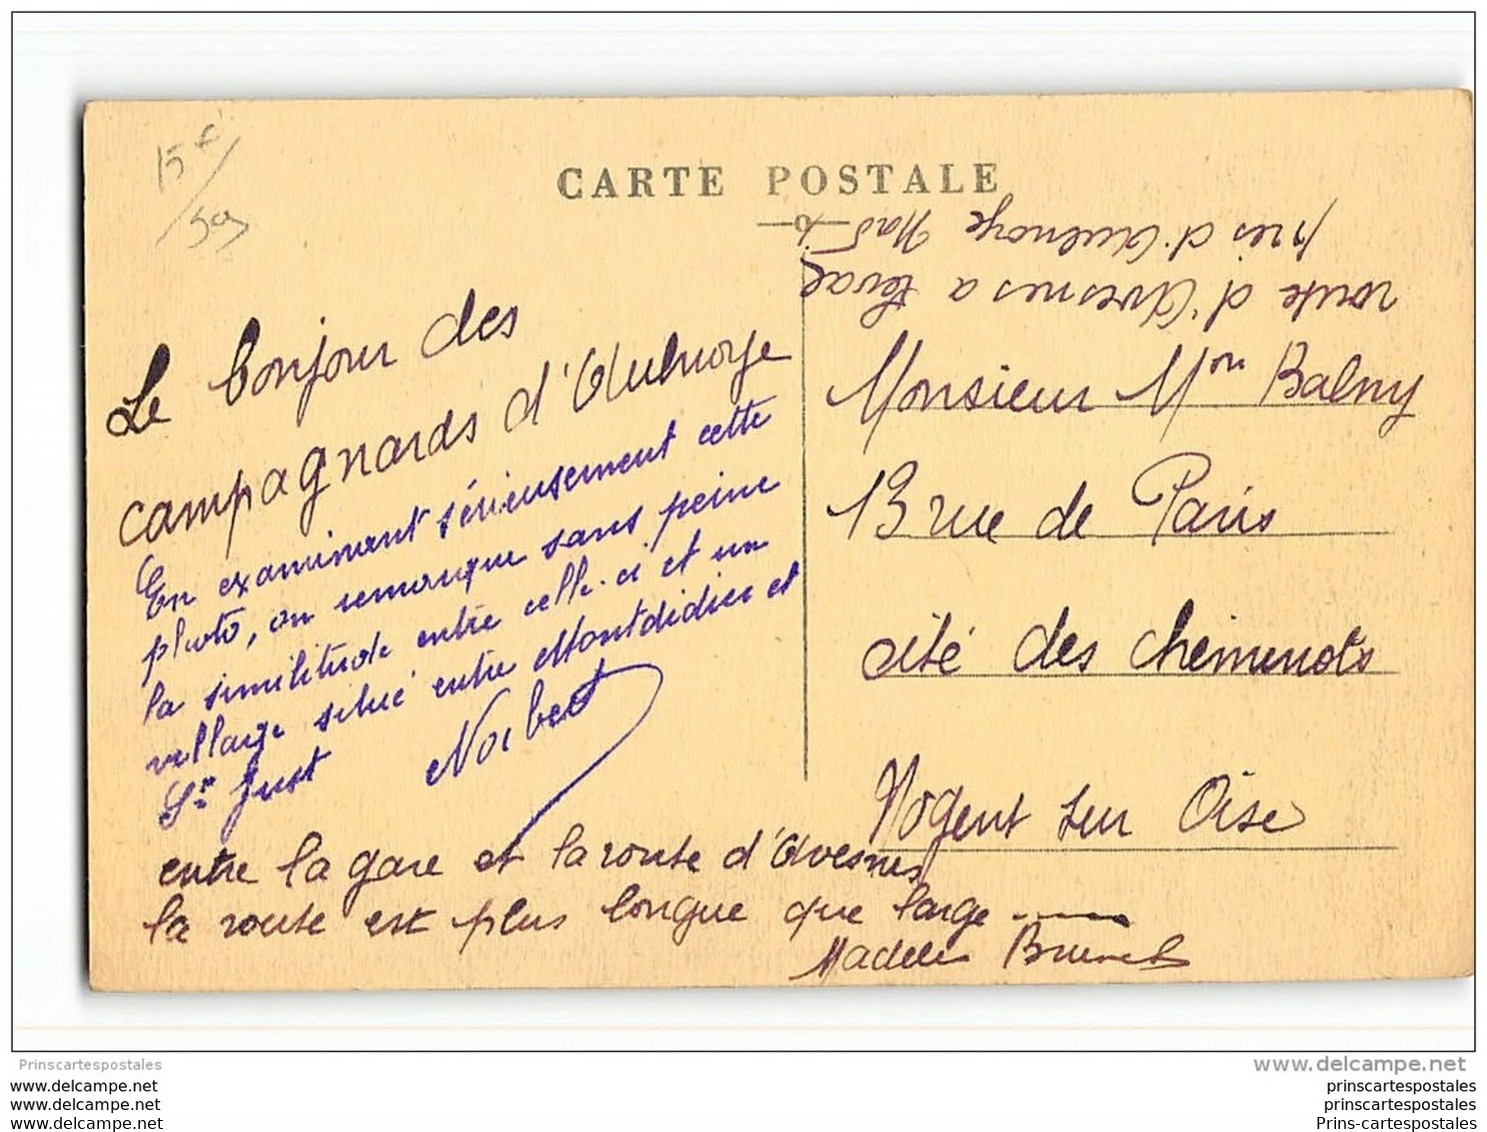 15 €
50
CARTE POSTALE
près d'Aulnoye Nord
route d'Avesnes a Leval
Le bonjour des
campagnards d'Aulnoye
En examinant sérieusement cette
photo, on remarque sans peine
la similitude entre celle-ci et un
village situé entre Montdidier et
St Just Norbert
entre la gare et la route d'Avesnes
la route est plus longue que large
Brunet
Monsieur Mon Balny
13 rue de Paris
cité des cheminots
Nogent sur Oise
Prinscartespostales
www.delcampe.net
www.delcampe.net
www.delcampe.net
www.delcampe.net
prinscartespostales
prinscartespostales
Prins-cartespostales